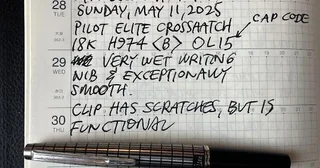 28
TUE
SUNDAY, MAY 11, 2025
PILOT ELITE CROSSHATCH
CAP CODE
18K H974 <B> OL15
29
WED
VERY WET WRITING
NIB & EXCEPTIONALLY
SMOOTH.
CLIP HAS SCRATCHES, BUT IS
30
THU
FUNCTIONAL